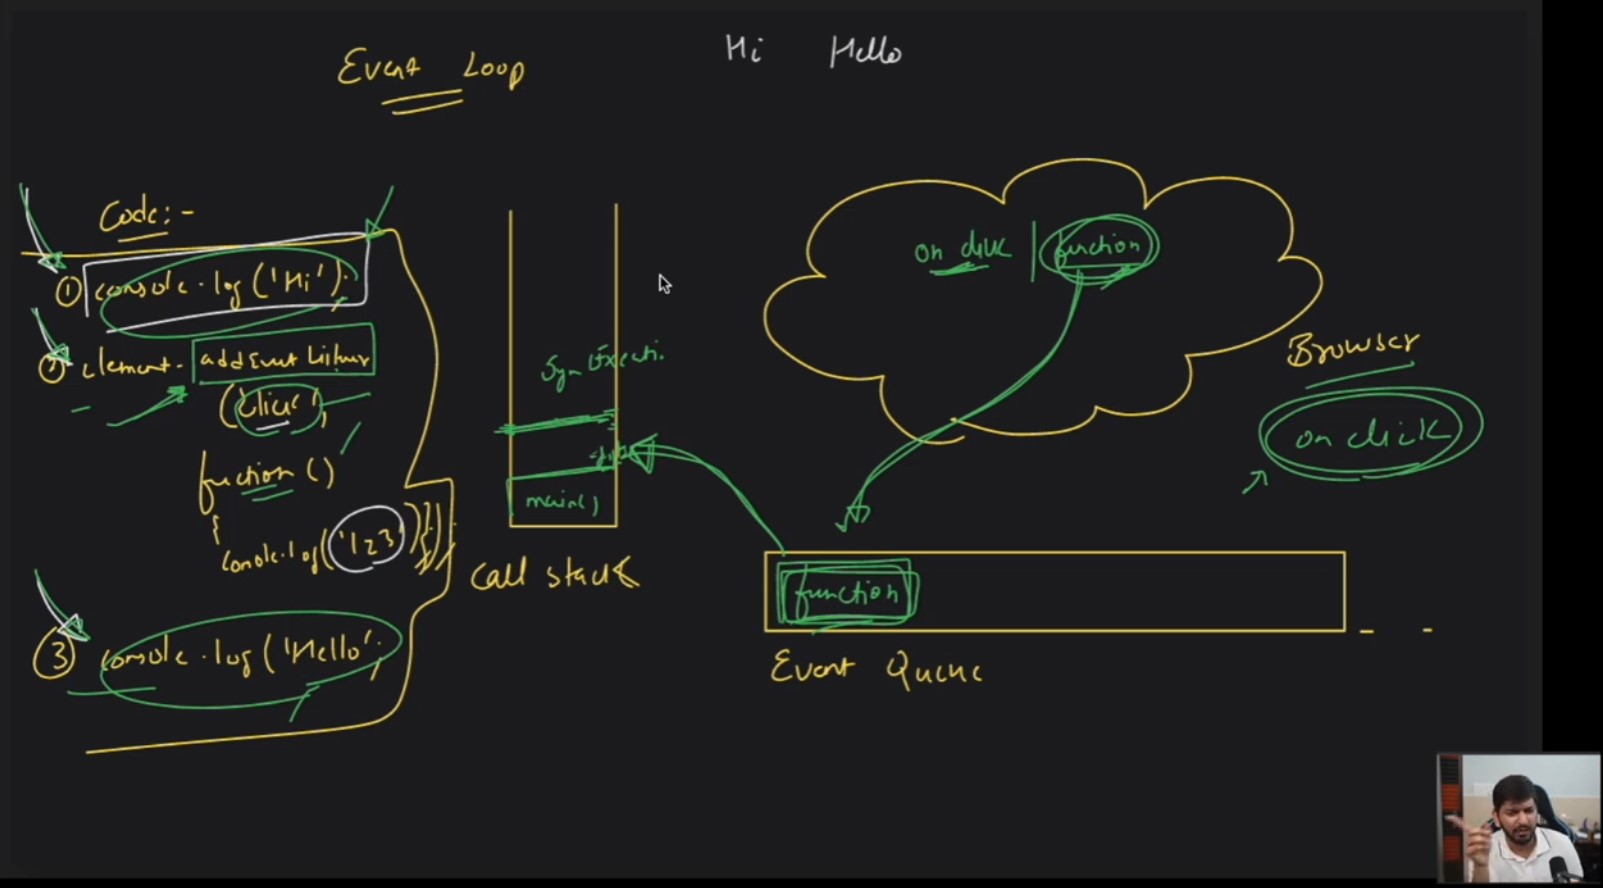 Event Loop
Hi Hello
Code:-
① console.log('Hi').
② element. addEvent Listner
('click',
fuction()
{
console.log('123')}})
③ console.log('Hello'.
Syn Executi.
main()
Call stack
on click | function
Browser
on click
function
Event Queue